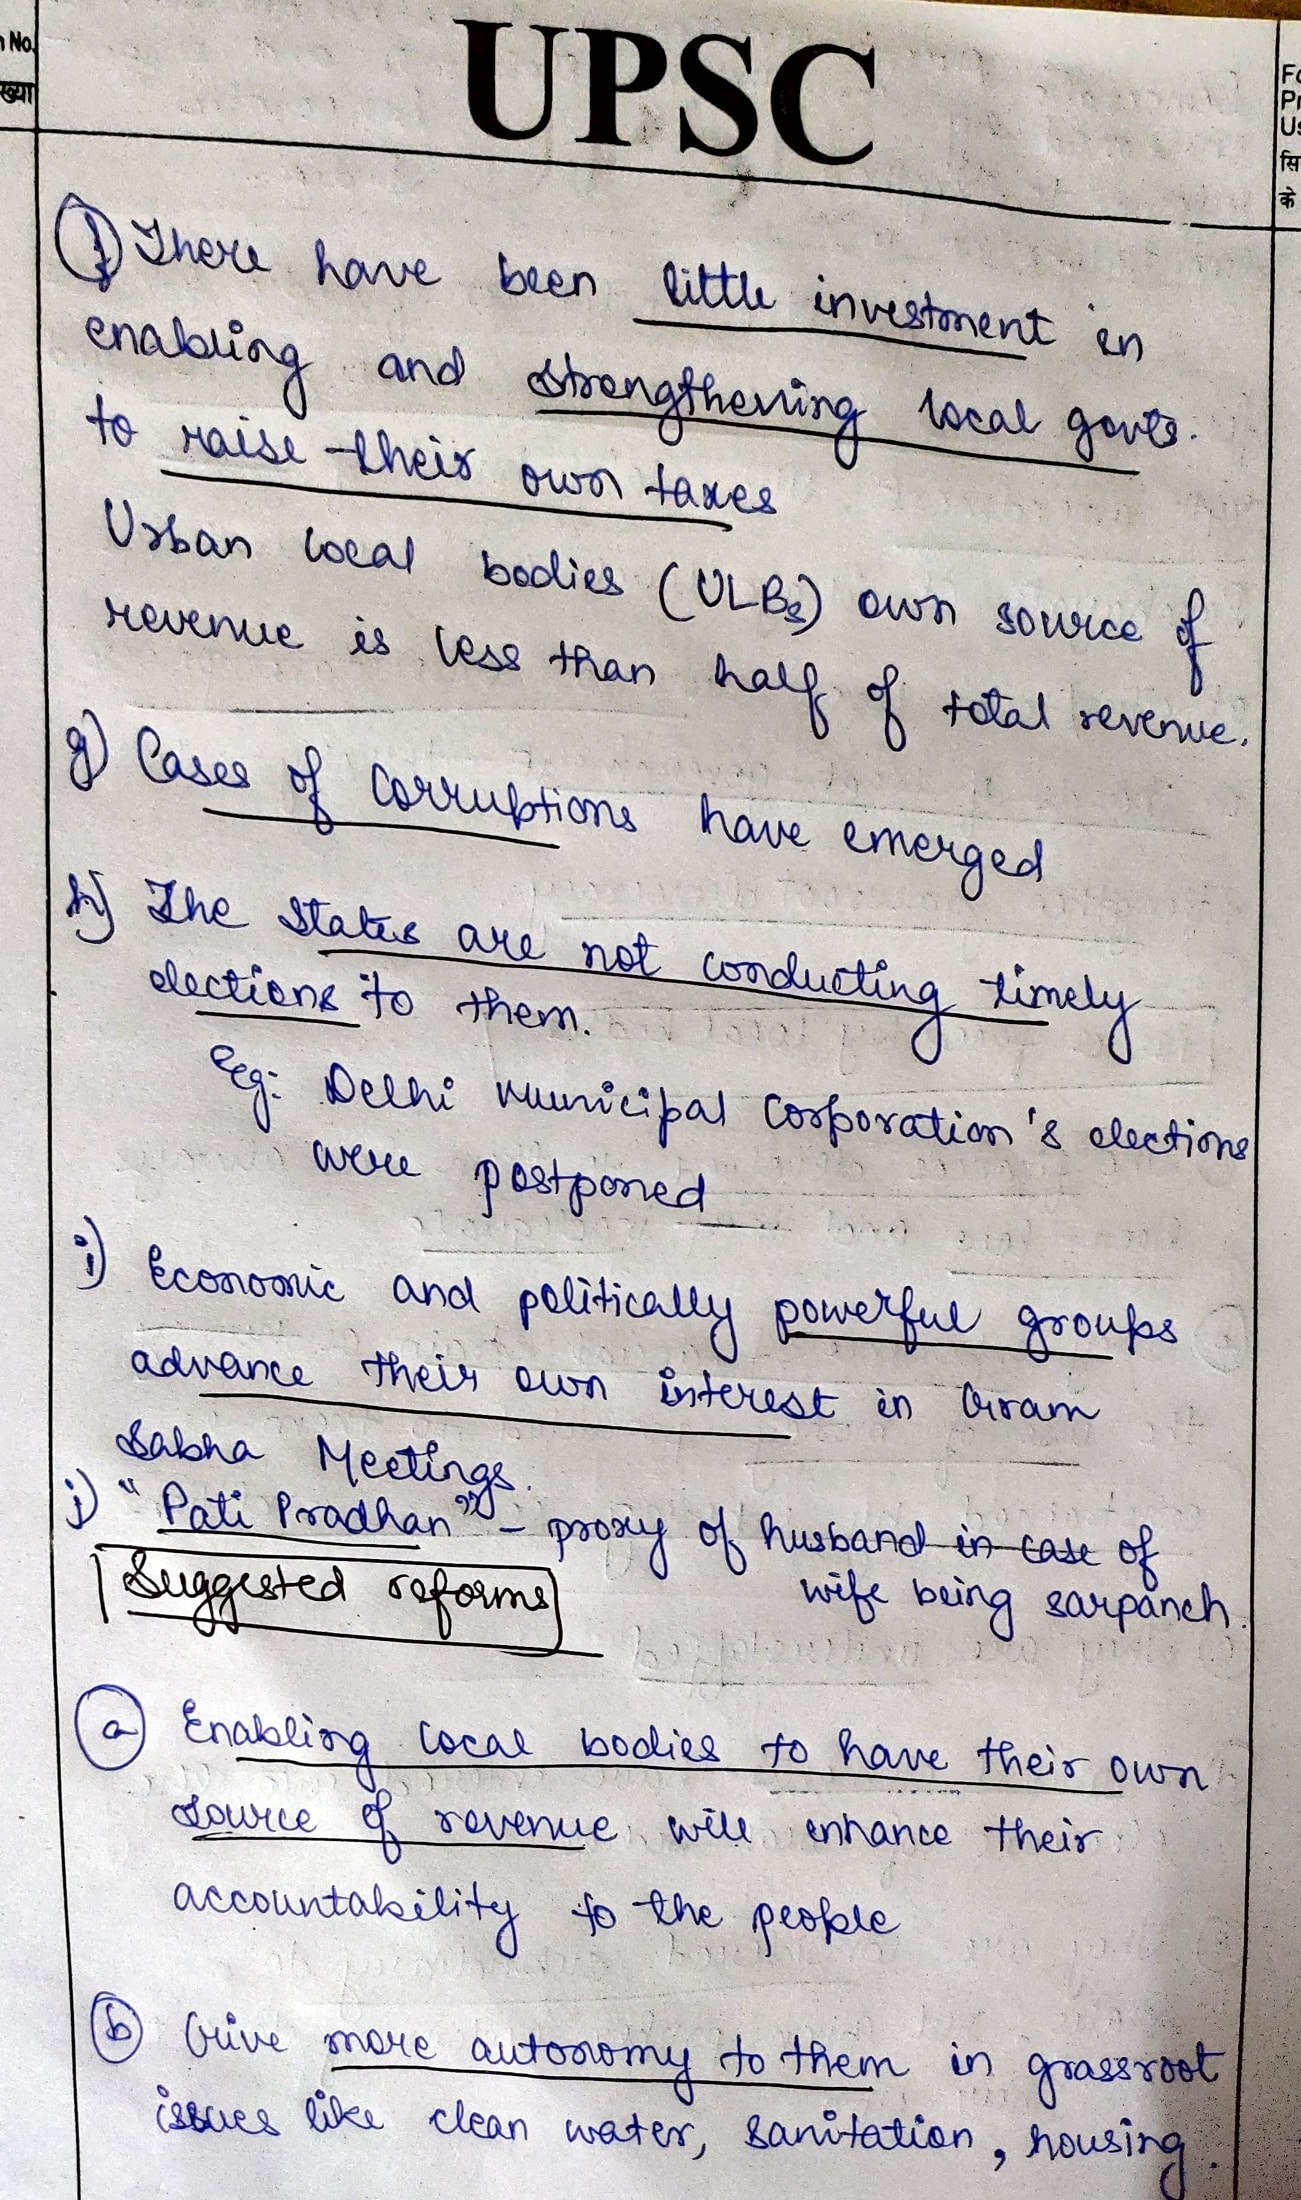 n No.
ख्या
UPSC
Fo
Pr
Us
सि
के
f) There have been little investment in
enabling and strengthening local govts.
to raise their own taxes
Urban local bodies (ULBs) own source of
revenue is less than half of total revenue.
g) Cases of corruptions have emerged
h) The States are not conducting timely
elections to them.
Eg: Delhi Municipal Corporation's elections
were postponed
i) Economic and politically powerful groups
advance their own interest in Gram
Sabha Meetings.
j) "Pati Pradhan" - proxy of husband in case of
wife being sarpanch.
Suggested reforms
a) Enabling local bodies to have their own
source of revenue will enhance their
accountability to the people
b) Give more autonomy to them in grassroot
issues like clean water, sanitation, housing.